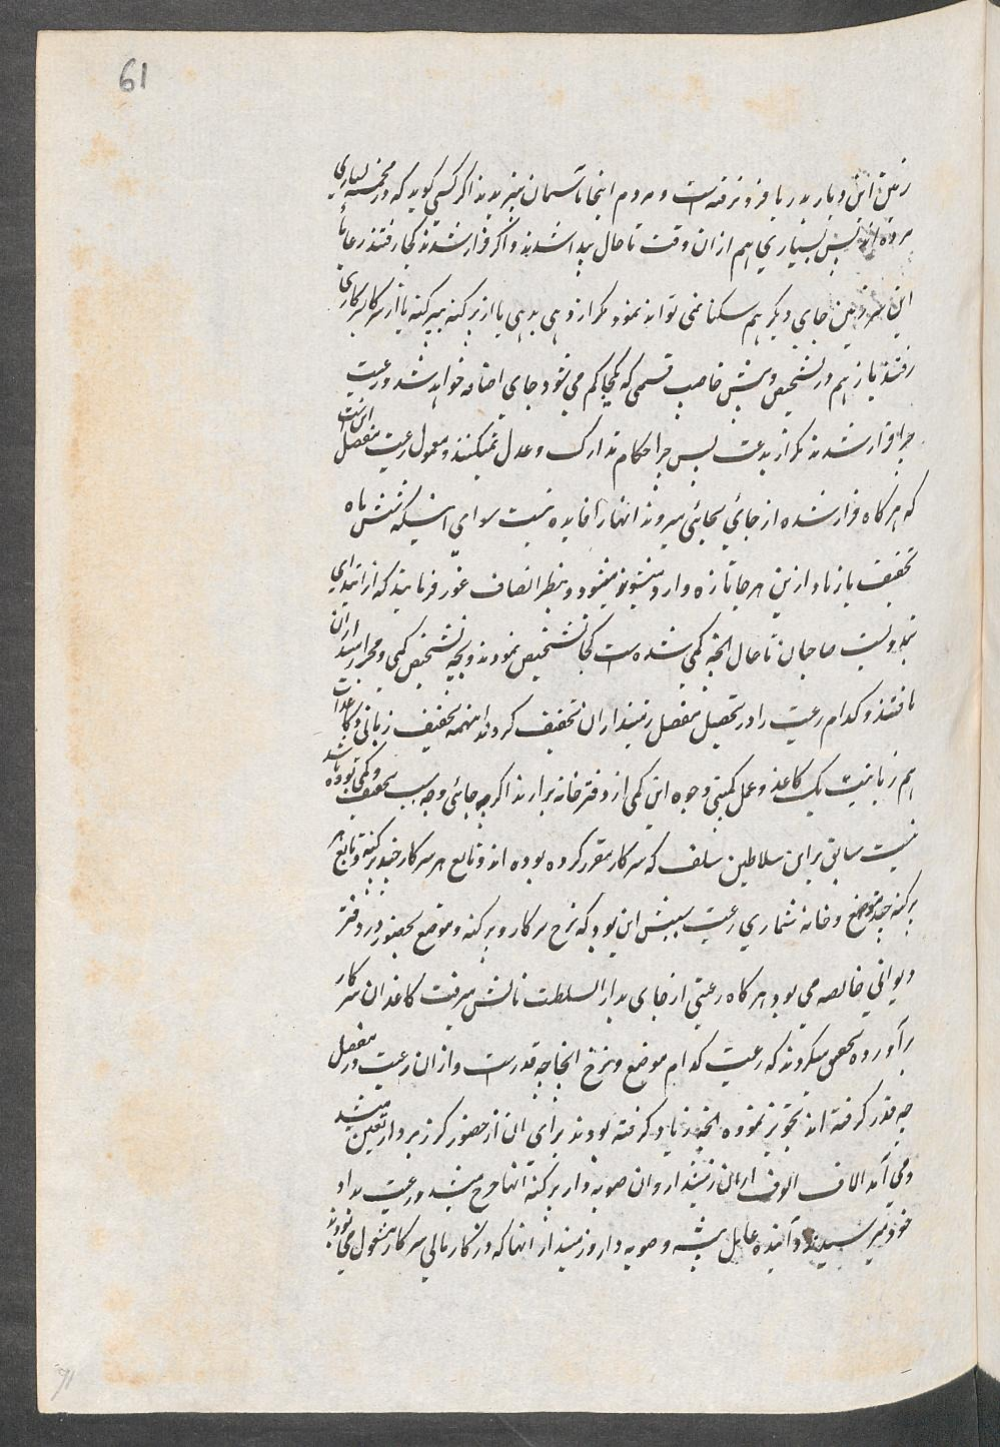 61
زمین این دیار بدریا فرو نرفته است و مردم اینجا باسمان نپریدند اگر کسی گوید که در مخمصه بسیاری
مرده اند پس بسیاری هم ازان وقت تا حال پیدا شدند و اگر فرار شدند کجا رفتند رعایا
این سرزمین جای دیگر هم سکنا نمی تواند نمود مگر از دهی بدهی یا از پرگنه بپرگنه یا از سرکار بسرکاری
رفتند باز هم در تشخیص و بیش خاصب قسمی که یکجا کم می شود جای اضافه خواهد شد و رعیت
چرا فرار شدند مگر از بدعت پس چرا حکام تدارک و عدل نمیکنند و معمول رعیت مفصل این است
که هرگاه فرار شده از جائی بجائی میروند انها را فایده نیست سوای اینکه شش ماه
تخفیف باز یاد ازین هر جا تازه وارد میشوند میشود و بنظر انصاف غور فرمایند که از ابتدای
بندوبست صاحبان تا حال انچه کمی شده است کجا تشخیص نمودند و بچه تشخیص کمی و مجرا زمینداران
یافتند و کدام رعیت را در تحصیل مفصل زمینداران تخفیف کردند اینهمه تخفیف زبانی و کاغذات
هم زبانیت یک کاغذ و عمل کمپنی وجوه این کمی از دفترخانه برارند اگرچه جائی وجه سبب تخفیف و کمی بوده باشد
نیست سابق براین سلاطین سلف که سرکار مقرر کرده بوده اند و تابع هر سرکار چند پرگنه و تابع هر
پرگنه چند موضع و خانه شماری رعیت سببش این بود که نرخ سرکار و پرگنه و موضع بحضور در دفتر
دیوانی خالصه می بود هرگاه رعیتی از جای بدار السلطنت نالش میرفت کاغذ ان سرکار
برآورده تحقیق میکردند که رعیت کدام موضع و نرخ انجا چه قدرست و ازان رعیت در مفصل
چه قدر گرفته اند تجویز نموده انچه زیاد گرفته بودند برای ان از حضور گرزبردار تعین میشد
و می آمد الاف الوف ازان زمیندار و ان صوبه دار پرگنه انها خرج میشد و رعیت بداد
خود میرسیدند و آینده عامل پیشه و صوبه دار و زمیندار انها که در کار مالی سرکار مشغول می بودند